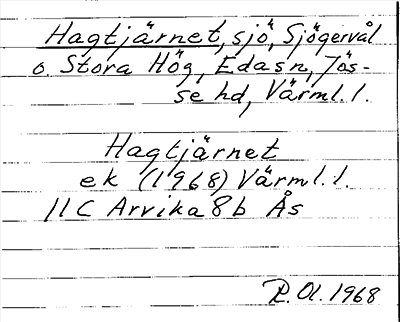 Hagtjärnet, sjö, Sjögervål
o. Stora Hög, Eda sn, Jös-
se hd, Värml. l.
Hagtjärnet
ek (1968) Värml. l.
11C Arvika 8b Ås
P. Ol. 1968